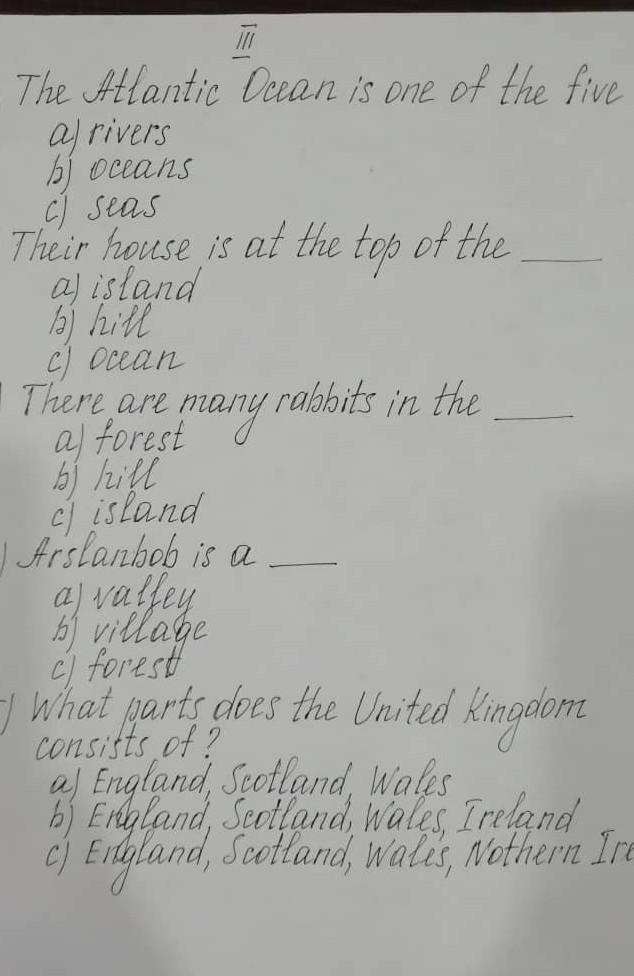 III
The Atlantic Ocean is one of the five
a) rivers
b) oceans
c) seas
Their house is at the top of the ____
a) island
b) hill
c) ocean
There are many rabbits in the ____
a) forest
b) hill
c) island
) Arslanbob is a ____
a) valley
b) village
c) forest
) What parts does the United Kingdom
consists of?
a) England, Scotland, Wales
b) England, Scotland, Wales, Ireland
c) England, Scotland, Wales, Nothern Ire